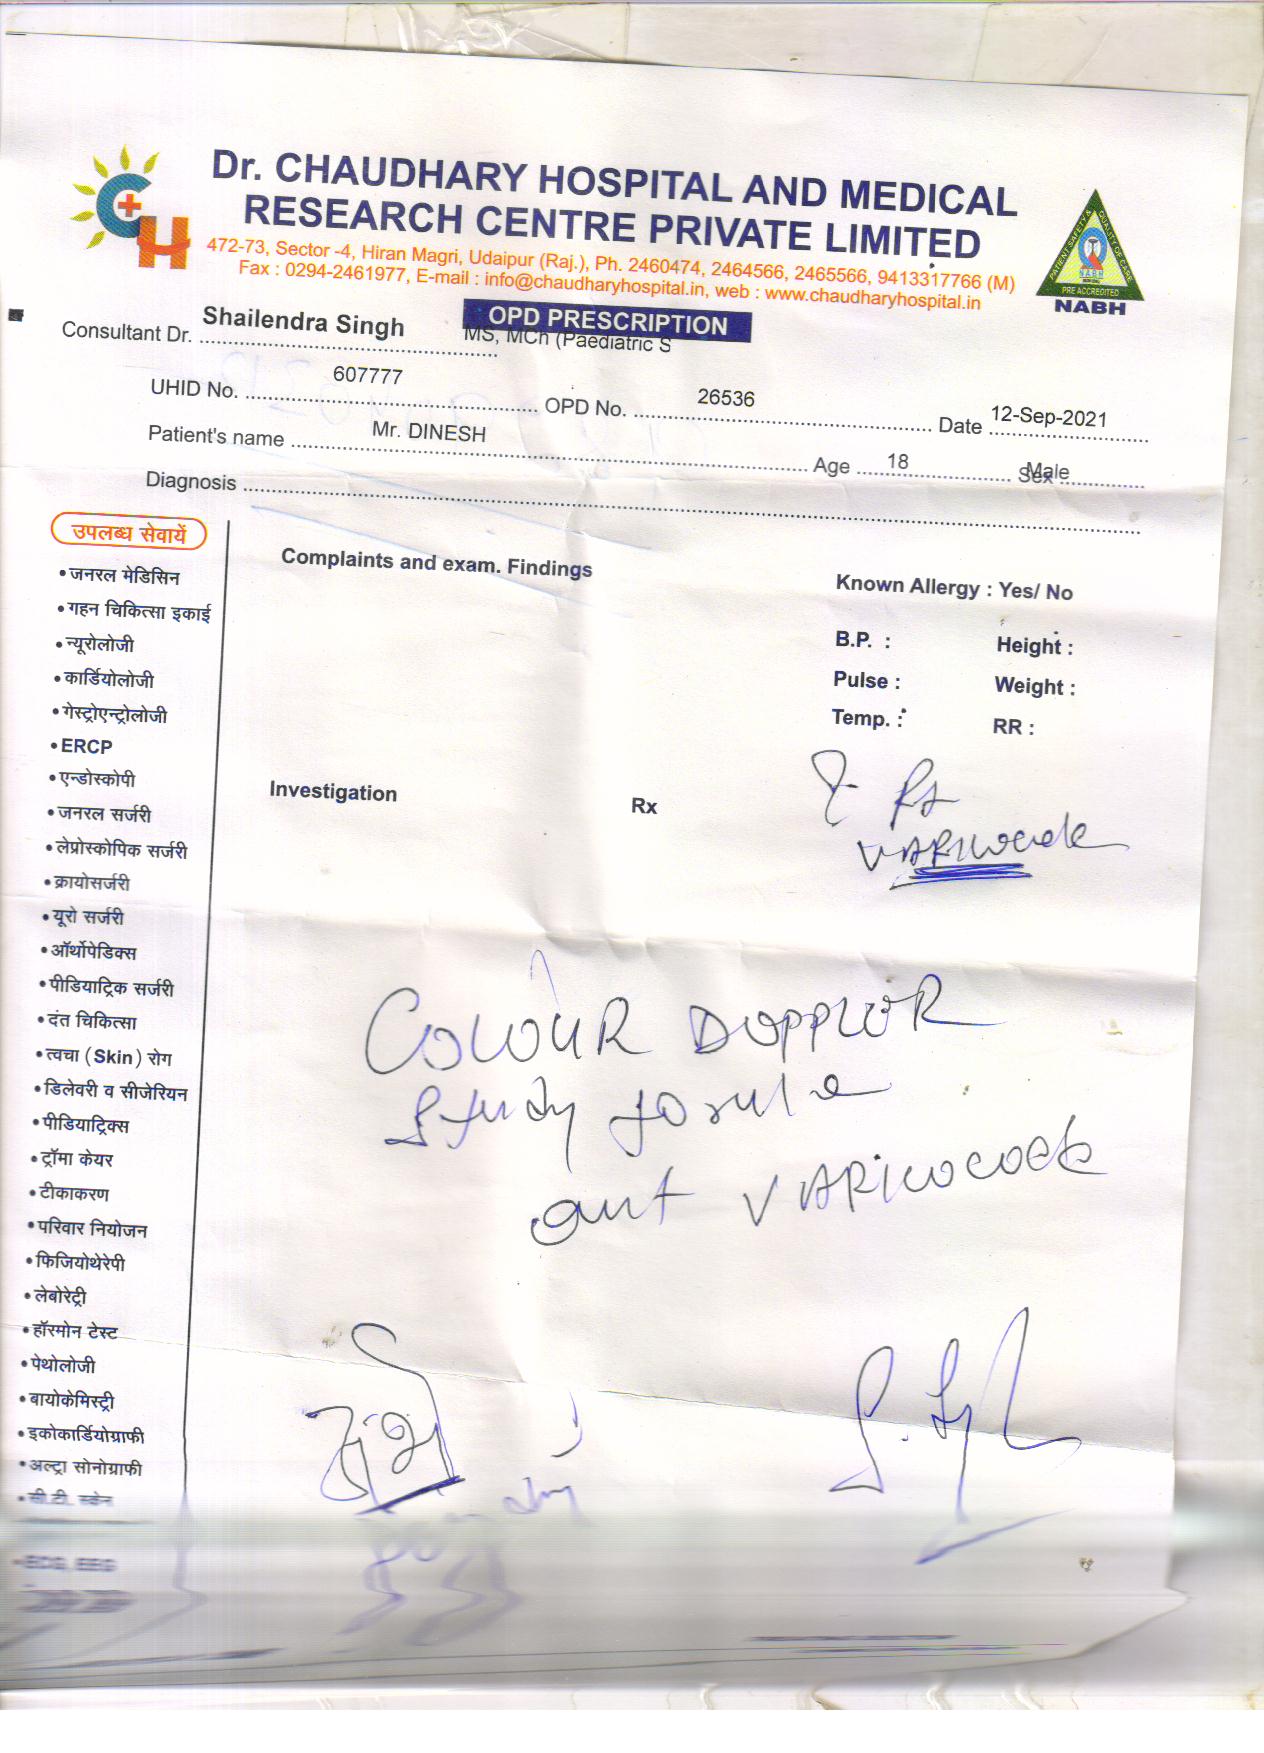 Dr. CHAUDHARY HOSPITAL AND MEDICAL
RESEARCH CENTRE PRIVATE LIMITED
472-73, Sector -4, Hiran Magri, Udaipur (Raj.), Ph. 2460474, 2464566, 2465566, 9413317766 (M)
Fax : 0294-2461977, E-mail : info@chaudharyhospital.in, web : www.chaudharyhospital.in
PATIENT SAFETY & QUALITY OF CARE
NABH
PRE ACCREDITED
NABH
OPD PRESCRIPTION
Consultant Dr. Shailendra Singh MS, MCh (Paediatric S
UHID No. 607777 OPD No. 26536 Date 12-Sep-2021
Patient's name Mr. DINESH Age 18 Sex Male
Diagnosis
उपलब्ध सेवायें
•जनरल मेडिसिन
•गहन चिकित्सा इकाई
•न्यूरोलोजी
•कार्डियोलोजी
•गेस्ट्रोएन्ट्रोलोजी
•ERCP
•एन्डोस्कोपी
•जनरल सर्जरी
•लेप्रोस्कोपिक सर्जरी
•क्रायोसर्जरी
•यूरो सर्जरी
•ऑर्थोपेडिक्स
•पीडियाट्रिक सर्जरी
•दंत चिकित्सा
•त्वचा (Skin) रोग
•डिलेवरी व सीजेरियन
•पीडियाट्रिक्स
•ट्रॉमा केयर
•टीकाकरण
•परिवार नियोजन
•फिजियोथेरेपी
•लेबोरेट्री
•हॉरमोन टेस्ट
•पेथोलोजी
•बायोकेमिस्ट्री
•इकोकार्डियोग्राफी
•अल्ट्रा सोनोग्राफी
•सी.टी. स्केन
•ECG, EEG
Complaints and exam. Findings
Known Allergy : Yes/ No
B.P. : Height :
Pulse : Weight :
Temp. : RR :
Investigation Rx
VARICOCELE
COLOUR DOPPLER
study to rule
out VARICOCELE